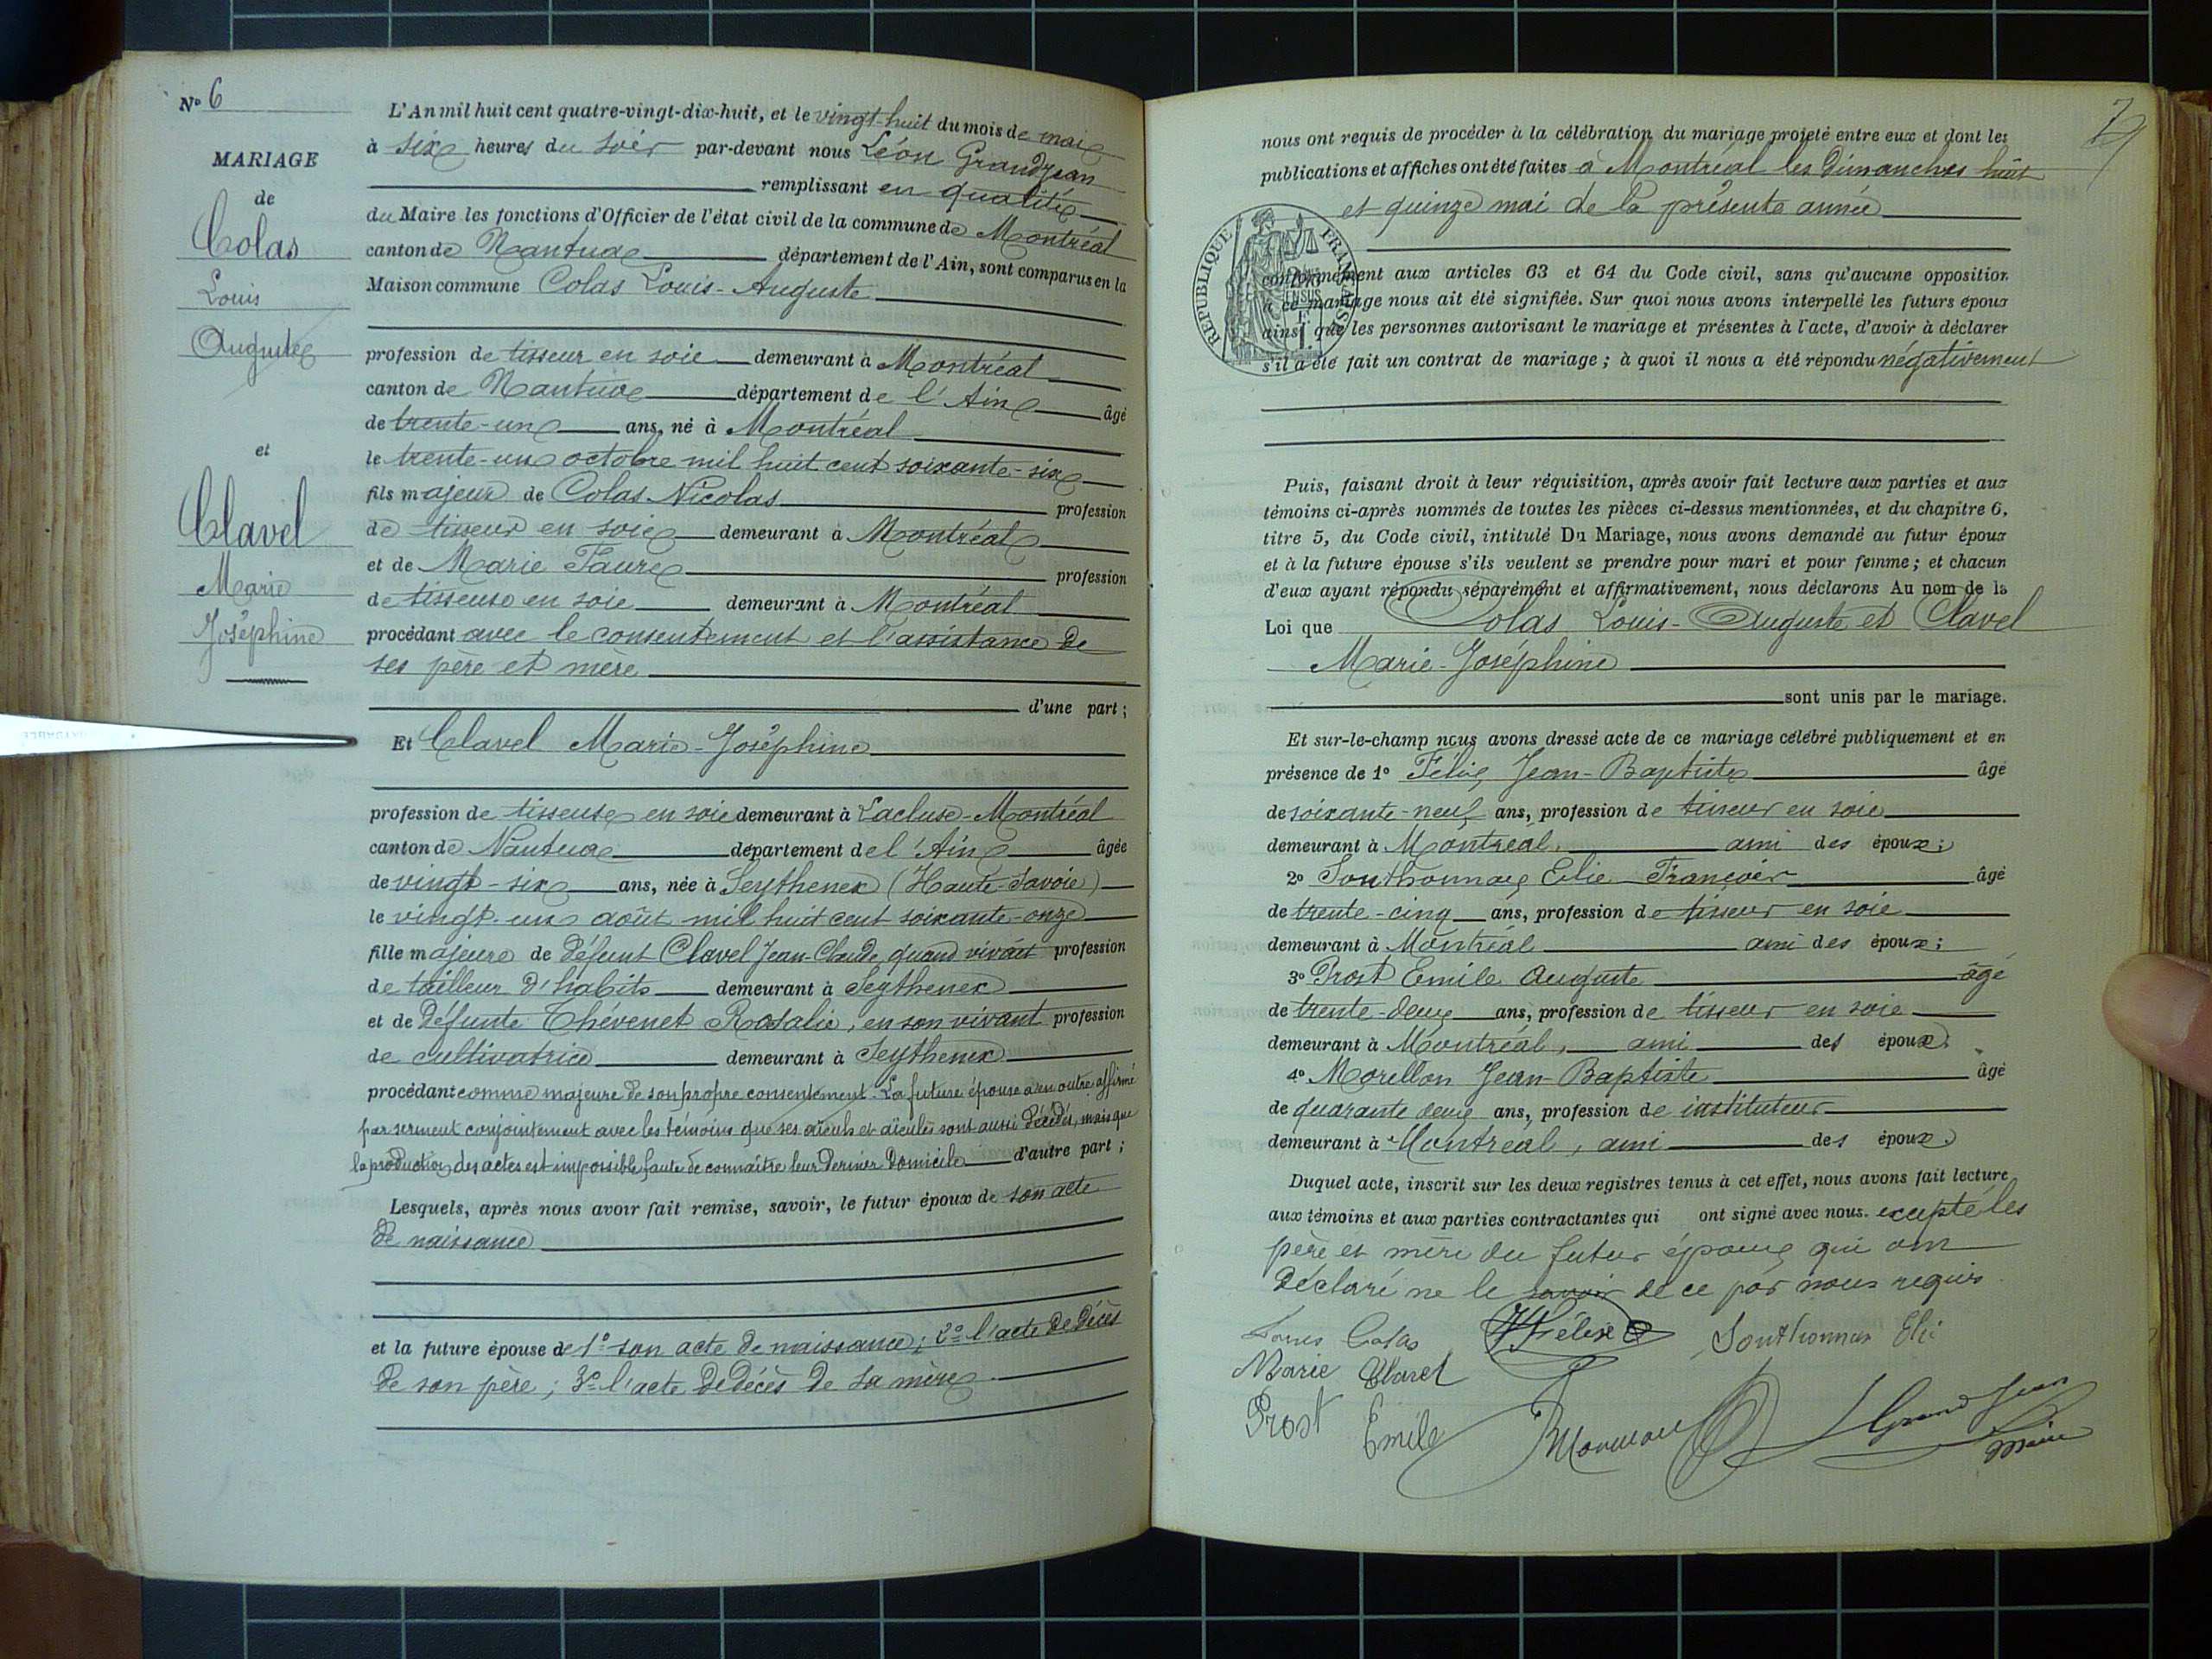 No 6
MARIAGE
de
Colas
Louis
Auguste
et
Clavel
Marie
Joséphine
L'An mil huit cent quatre-vingt-dix-huit, et le vingt-huit du mois de mai
à six heures du soir par-devant nous Léon Grandjean
remplissant en qualité
du Maire les fonctions d'Officier de l'état civil de la commune de Montréal
canton de Nantua département de l'Ain, sont comparus en la
Maison commune Colas Louis-Auguste
profession de tisseur en soie demeurant à Montréal
canton de Nantua département de l'Ain âgé
de trente-un ans, né à Montréal
le trente-un octobre mil huit cent soixante-six
fils majeur de Colas Nicolas profession
de tisseur en soie demeurant à Montréal
et de Marie Faure profession
de tisseuse en soie demeurant à Montréal
procédant avec le consentement et l'assistance de
ses père et mère
d'une part ;
Et Clavel Marie-Joséphine
profession de tisseuse en soie demeurant à Lacluse-Montréal
canton de Nantua département de l'Ain âgée
de vingt-six ans, née à Seythenex (Haute-Savoie)
le vingt-un août mil huit cent soixante-onze
fille majeure de défunt Clavel Jean-Claude, quand vivait profession
de tailleur d'habits demeurant à Seythenex
et de défunte Thévenet Rosalie, en son vivant profession
de cultivatrice demeurant à Seythenex
procédant comme majeure de son propre consentement. La future épouse a en outre affirmé
par serment conjointement avec les témoins que ses aïeuls et aïeules sont aussi décédés, mais que
la production des actes est impossible faute de connaître leur dernier domicile d'autre part ;
Lesquels, après nous avoir fait remise, savoir, le futur époux de son acte
de naissance
et la future épouse de 1° son acte de naissance; 2° l'acte de décès
de son père; 3° l'acte de décès de sa mère
nous ont requis de procéder à la célébration du mariage projeté entre eux et dont les
publications et affiches ont été faites à Montréal les dimanches huit
et quinze mai de la présente année
RÉPUBLIQUE FRANÇAISE
conformément aux articles 63 et 64 du Code civil, sans qu'aucune opposition
à ce mariage nous ait été signifiée. Sur quoi nous avons interpellé les futurs époux
ainsi que les personnes autorisant le mariage et présentes à l'acte, d'avoir à déclarer
s'il a été fait un contrat de mariage ; à quoi il nous a été répondu négativement
Puis, faisant droit à leur réquisition, après avoir fait lecture aux parties et aux
témoins ci-après nommés de toutes les pièces ci-dessus mentionnées, et du chapitre 6,
titre 5, du Code civil, intitulé Du Mariage, nous avons demandé au futur époux
et à la future épouse s'ils veulent se prendre pour mari et pour femme ; et chacun
d'eux ayant répondu séparément et affirmativement, nous déclarons Au nom de la
Loi que Colas Louis-Auguste et Clavel
Marie-Joséphine
sont unis par le mariage.
Et sur-le-champ nous avons dressé acte de ce mariage célébré publiquement et en
présence de 1° Félix Jean-Baptiste âgé
de soixante-neuf ans, profession de tisseur en soie
demeurant à Montréal, ami des époux ;
2° Sonthonnax Elie François âgé
de trente-cinq ans, profession de tisseur en soie
demeurant à Montréal ami des époux ;
3° Prost Emile Auguste âgé
de trente-deux ans, profession de tisseur en soie
demeurant à Montréal, ami des époux
4° Morellon Jean-Baptiste âgé
de quarante deux ans, profession de instituteur
demeurant à Montréal, ami des époux
Duquel acte, inscrit sur les deux registres tenus à cet effet, nous avons fait lecture
aux témoins et aux parties contractantes qui ont signé avec nous. excepté les
père et mère du futur époux qui ont
déclaré ne le savoir de ce par nous requis
Louis Colas Félix Sonthonnax Elie
Marie Clavel
Prost Emile Morellon Grandjean
Maire